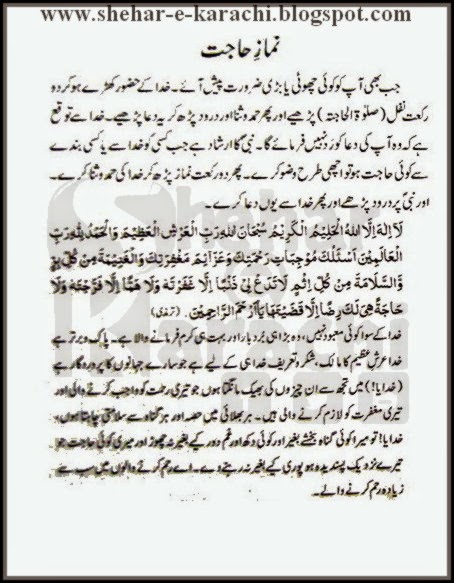 www.shehar-e-karachi.blogspot.com
نمازِ حاجت
جب بھی آپ کو کوئی چھوٹی یا بڑی ضرورت پیش آئے۔ خدا کے حضور کھڑے ہو کر دو
رکعت نفل (صلوٰۃ الحاجتہ) پڑھیے اور پھر حمد و ثنا اور درود پڑھ کر یہ دعا پڑھیے۔ خدا سے توقع
ہے کہ وہ آپ کی دعا کو رد نہیں فرمائے گا۔ نبیؐ کا ارشاد ہے جب کسی کو خدا سے یا کسی بندے
سے کوئی حاجت ہو تو اچھی طرح وضو کرے۔ پھر دو رکعت نماز پڑھ کر خدا کی حمد و ثنا کرے۔
اور نبیؐ پر درود پڑھے اور پھر خدا سے یوں دعا کرے۔
لَآ اِلٰهَ اِلَّا اللهُ الْحَلِيْمُ الْكَرِيْمُ سُبْحَانَ اللهِ رَبِّ الْعَرْشِ الْعَظِيْمِ وَالْحَمْدُ لِلّٰهِ رَبِّ
الْعَالَمِيْنَ اَسْئَلُكَ مُوْجِبَاتِ رَحْمَتِكَ وَعَزَآئِمَ مَغْفِرَتِكَ وَالْغَنِيْمَةَ مِنْ كُلِّ بِرٍّ
وَّالسَّلَامَةَ مِنْ كُلِّ اِثْمٍ لَا تَدَعْ لِيْ ذَنْبًا اِلَّا غَفَرْتَهٗ وَلَا هَمًّا اِلَّا فَرَّجْتَهٗ وَلَا
حَاجَةً هِيَ لَكَ رِضًا اِلَّا قَضَيْتَهَا يَا اَرْحَمَ الرَّاحِمِيْنَ۔ (ترمذی)
خدا کے سوا کوئی معبود نہیں، وہ بڑا ہی بردبار اور بہت ہی کرم فرمانے والا ہے۔ پاک و برتر ہے
خدا عرشِ عظیم کا مالک، شکر و تعریف خدا ہی کے لیے ہے جو سارے جہانوں کا پروردگار ہے
(خدایا!) میں تجھ سے ان چیزوں کی بھیک مانگتا ہوں جو تیری رحمت کو واجب کرنے والی اور
تیری مغفرت کو لازم کرنے والی ہیں۔ ہر بھلائی میں حصہ اور ہر گناہ سے سلامتی چاہتا ہوں،
خدایا! تو میرا کوئی گناہ بخشے بغیر اور کوئی دکھ اور غم دور کیے بغیر نہ چھوڑ اور میری کوئی حاجت جو
تیرے نزدیک پسندیدہ ہو پوری کیے بغیر نہ رہنے دے۔ اے رحم کرنے والوں میں سب سے
زیادہ رحم کرنے والے۔
Shehar
e
Karachi